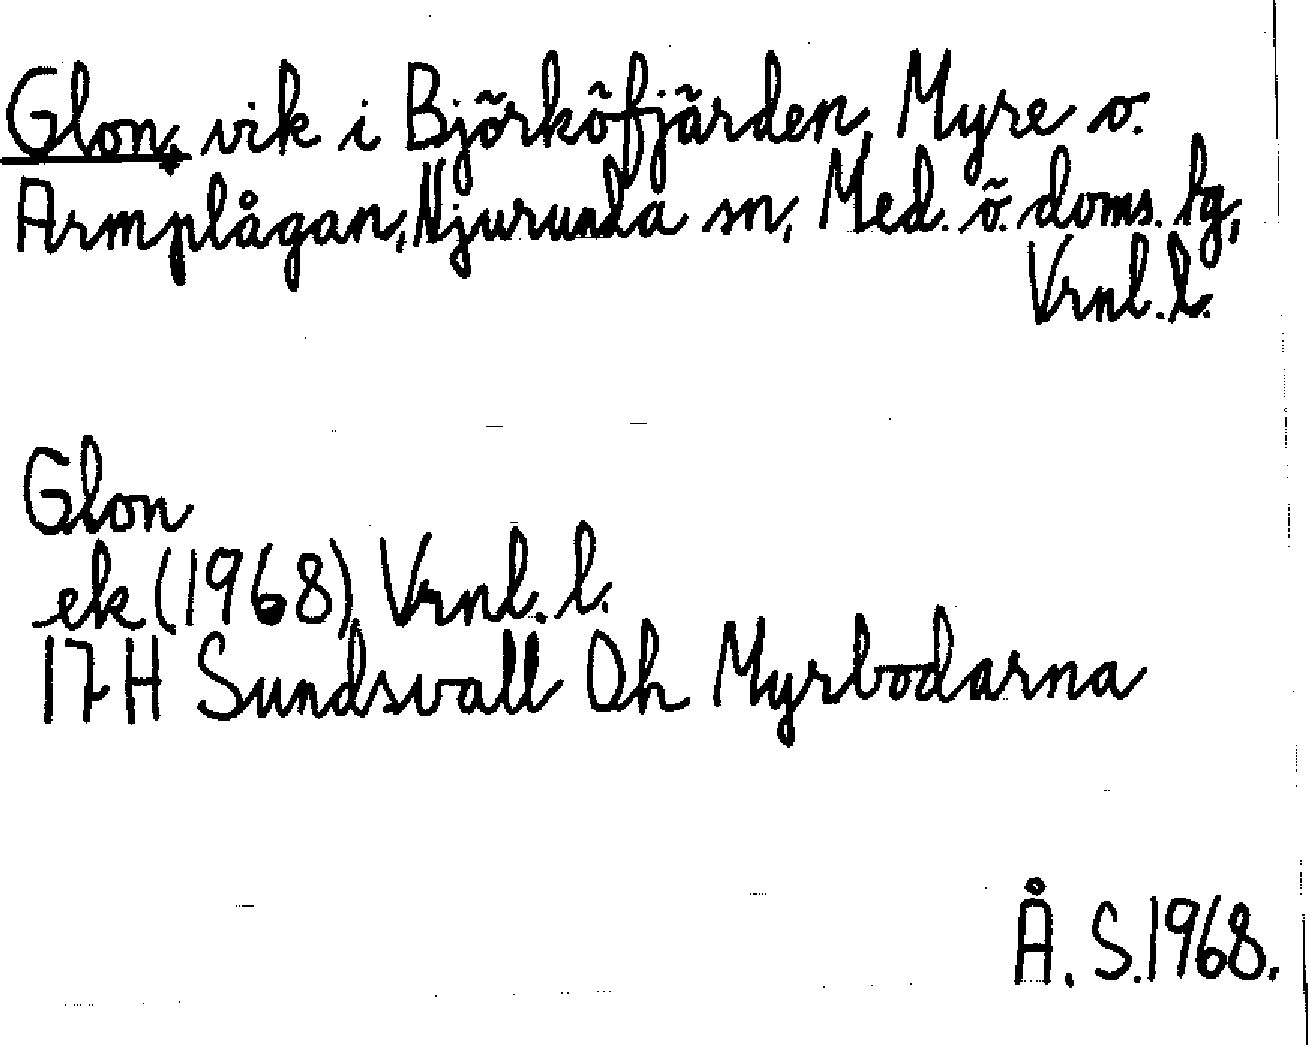 Glon, vik i Björköfjärden, Myre o.
Armplågan, Njurunda sn, Med. ö. doms. lg,
Vrnl. l.
Glon
ek (1968), Vrnl. l.
17H Sundsvall 0h Myrbodarna
Å. S. 1968.